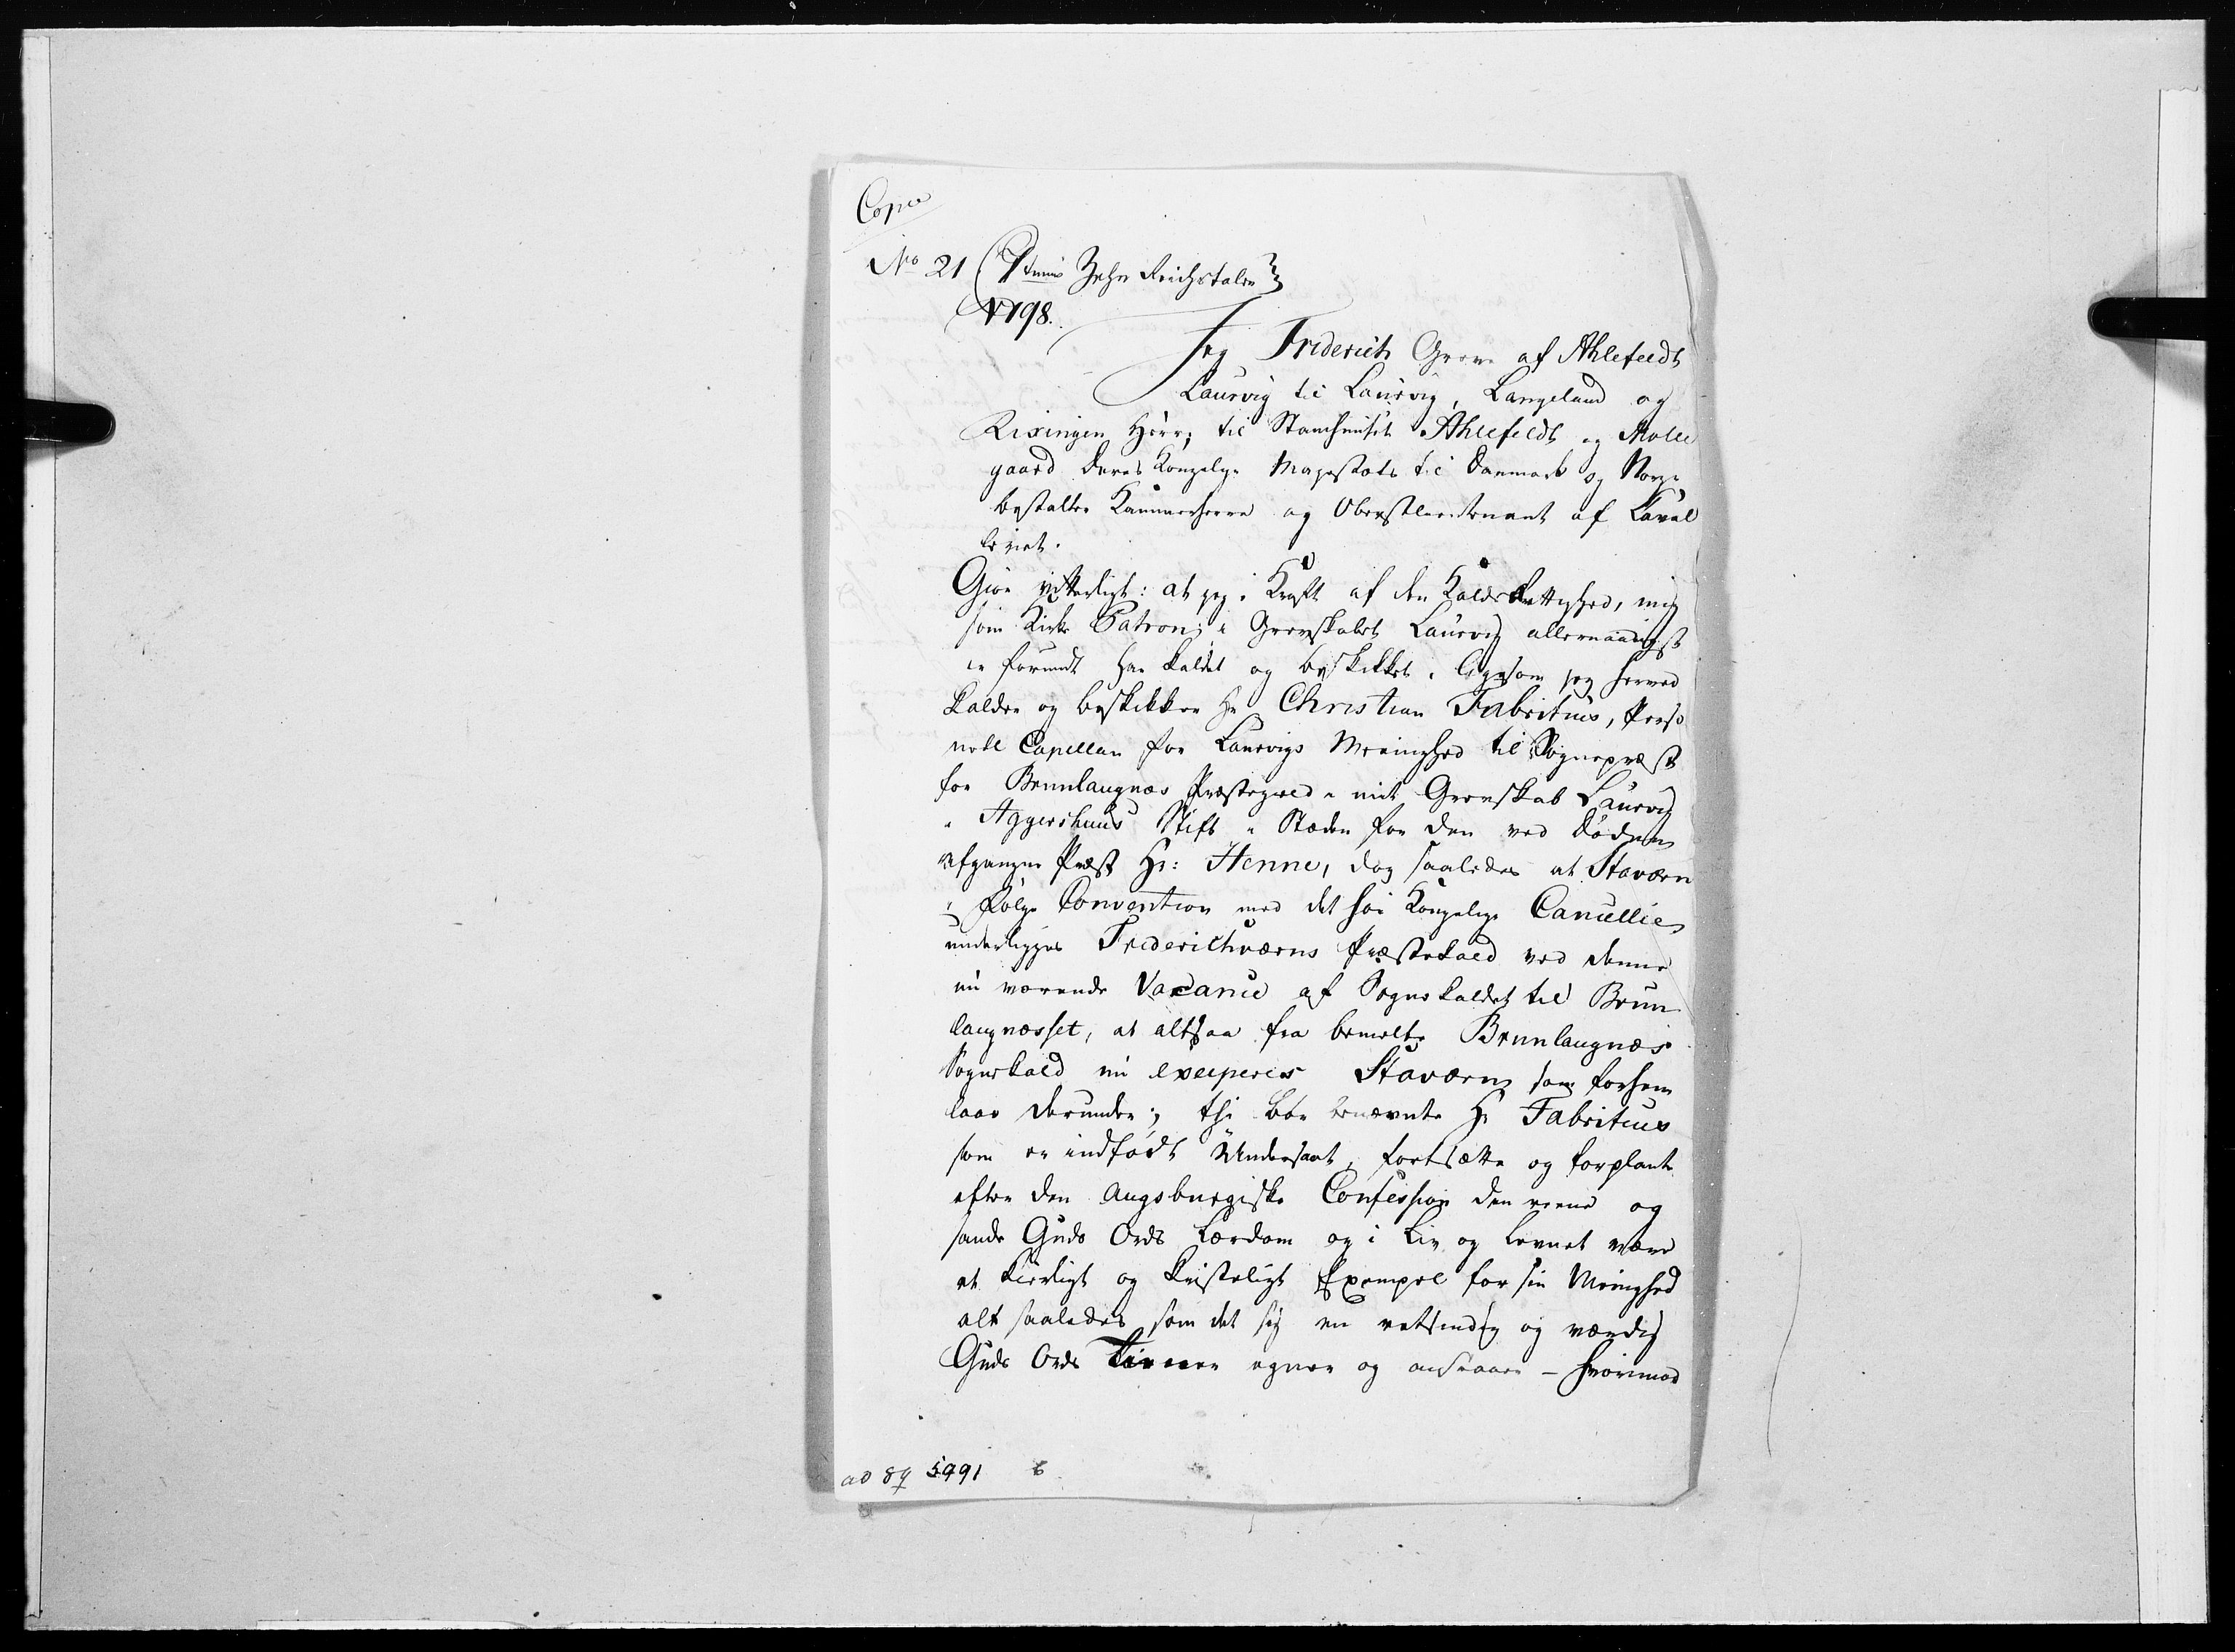 Copie
No 21 Zehn Reichstaler
1798.
Jeg Friderich Greve af Ahlefeldt
Laurvig til Laurvig, Langeland og
Rixingen Herre, til Stamhuuset Ahlefeldt og Mølle
gaard Deres Kongelige Majestæts til Danmark og Norge
bestalter Kammerherre og Oberstleutenant af Caval
leriet.
Giør vitterligt: at jeg i Kraft af den Kalds Rettighed, mig
som Kirke Patron i Grevskabet Laurvig allernaadigst
er forundt har kaldet og beskikket, ligesom jeg herved
kalder og beskikker Hr Christian Fabritius, Perso
nell Capellan for Laurvigs Meenighed til Sognepræst
for Brunlaugnæs Præstegield i mit Grevskab Laurvig
i Aggershuus Stift i Stæden for den ved Døden
afgangne Præst Hr: Henne, dog saaledes at Staværn
i Følge Convention med det høie Kongelige Cancellie
underligges Friderichsværns Præstekald ved denne
nu værende Vacance af Sognekaldet til Brun
laugnæsset, at altsaa fra bemelte Brunlaugnæs
Sognekald nu exciperes Staværn som forhen
laae derunder; thi bør benævnte Hr Fabritius
som er indfødt Undersaat, fortsætte og forplante
efter den Augsburgiske Confession den reene og
sande Guds Ords Lærdom og i Liv og Levnet være
et kierligt og christeligt Exempel for sin Meenighed
alt saaledes som det sig en retsindig og værdig
Guds Ords Tienere egner og anstaaer – hvorimod
ad 89 5991 6